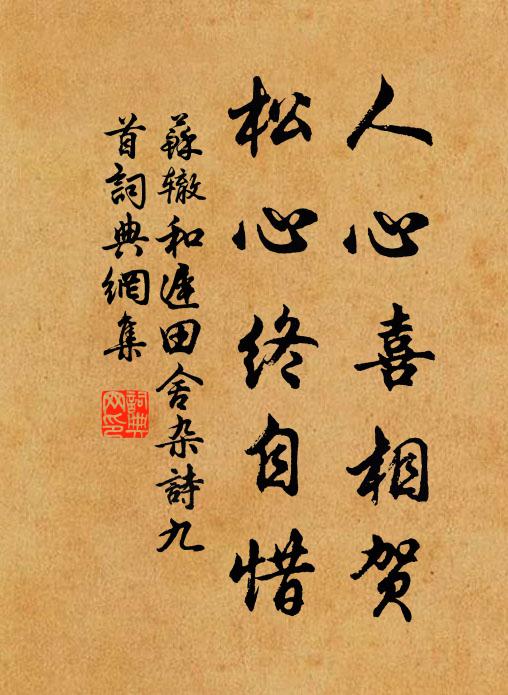 人心喜相贺
松心终自惜
蘇辙和遲田舍杂詩九
首詞典網集
詞典
网印